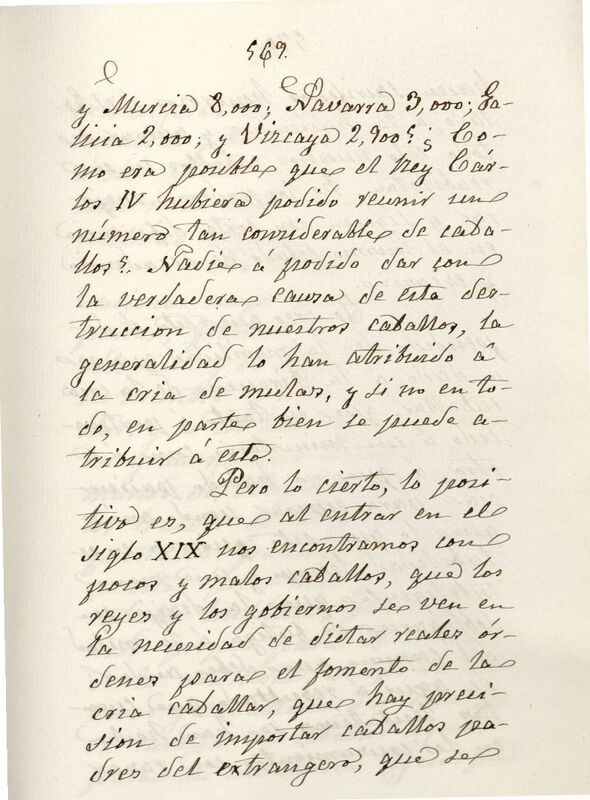 569.
y Murcia 8,000; Navarra 3,000; Ga-
licia 2,000; y Vizcaya 2,900? ¿Co-
mo era posible que el Rey Cár-
los IV hubiera podido reunir un
número tan considerable de caba-
llos?. Nadie á podido dar con
la verdadera causa de esta des-
truccion de nuestros caballos, la
generalidad lo han atribuido á
la cria de mulas, y si no en to-
do, en parte bien se puede a-
tribuir á esto.
Pero lo cierto, lo posi-
tivo es, que al entrar en el
siglo XIX nos encontramos con
pocos y malos caballos, que los
reyes y los gobiernos se ven en
la necesidad de dictar reales ór-
denes para el fomento de la
cria caballar, que hay preci-
sion de importar caballos pa-
dres del extrangero, que se